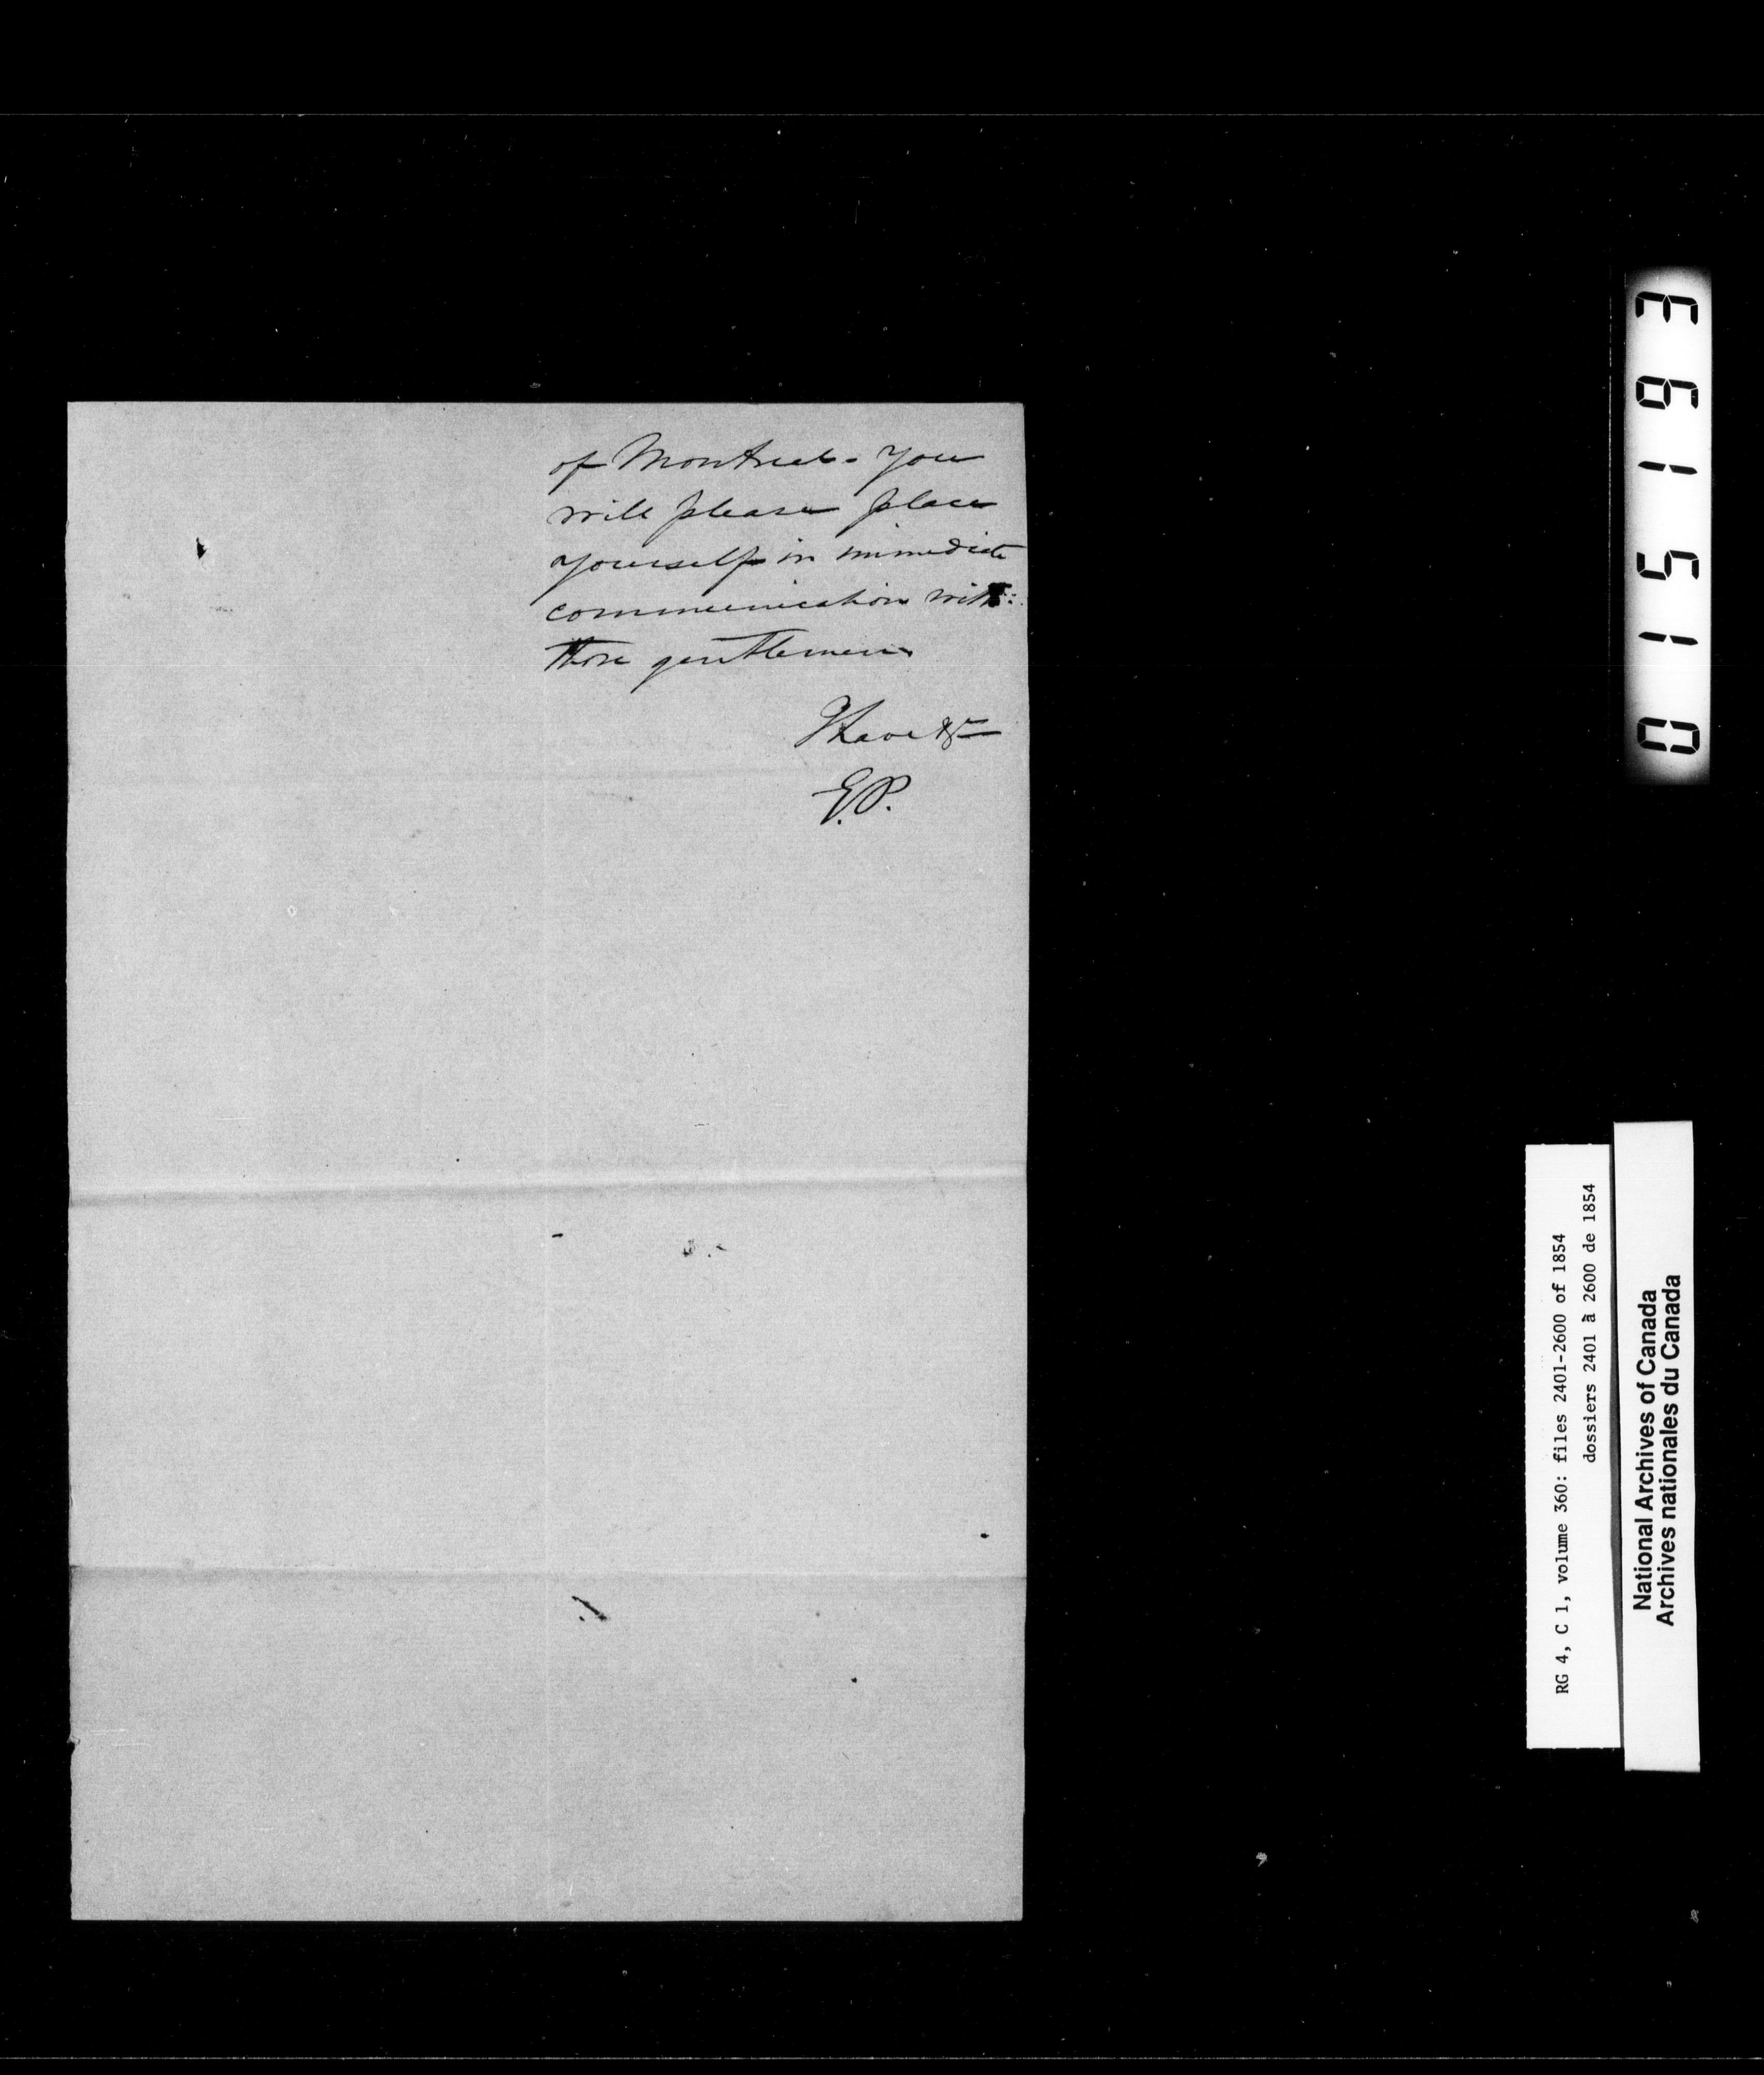 of Montreal. You
will please place
yourself in immediate
communication with
those gentlemen
I have &c
E.P.
015193
RG 4, C 1, volume 360: files 2401-2600 of 1854
dossiers 2401 à 2600 de 1854
National Archives of Canada
Archives nationales du Canada